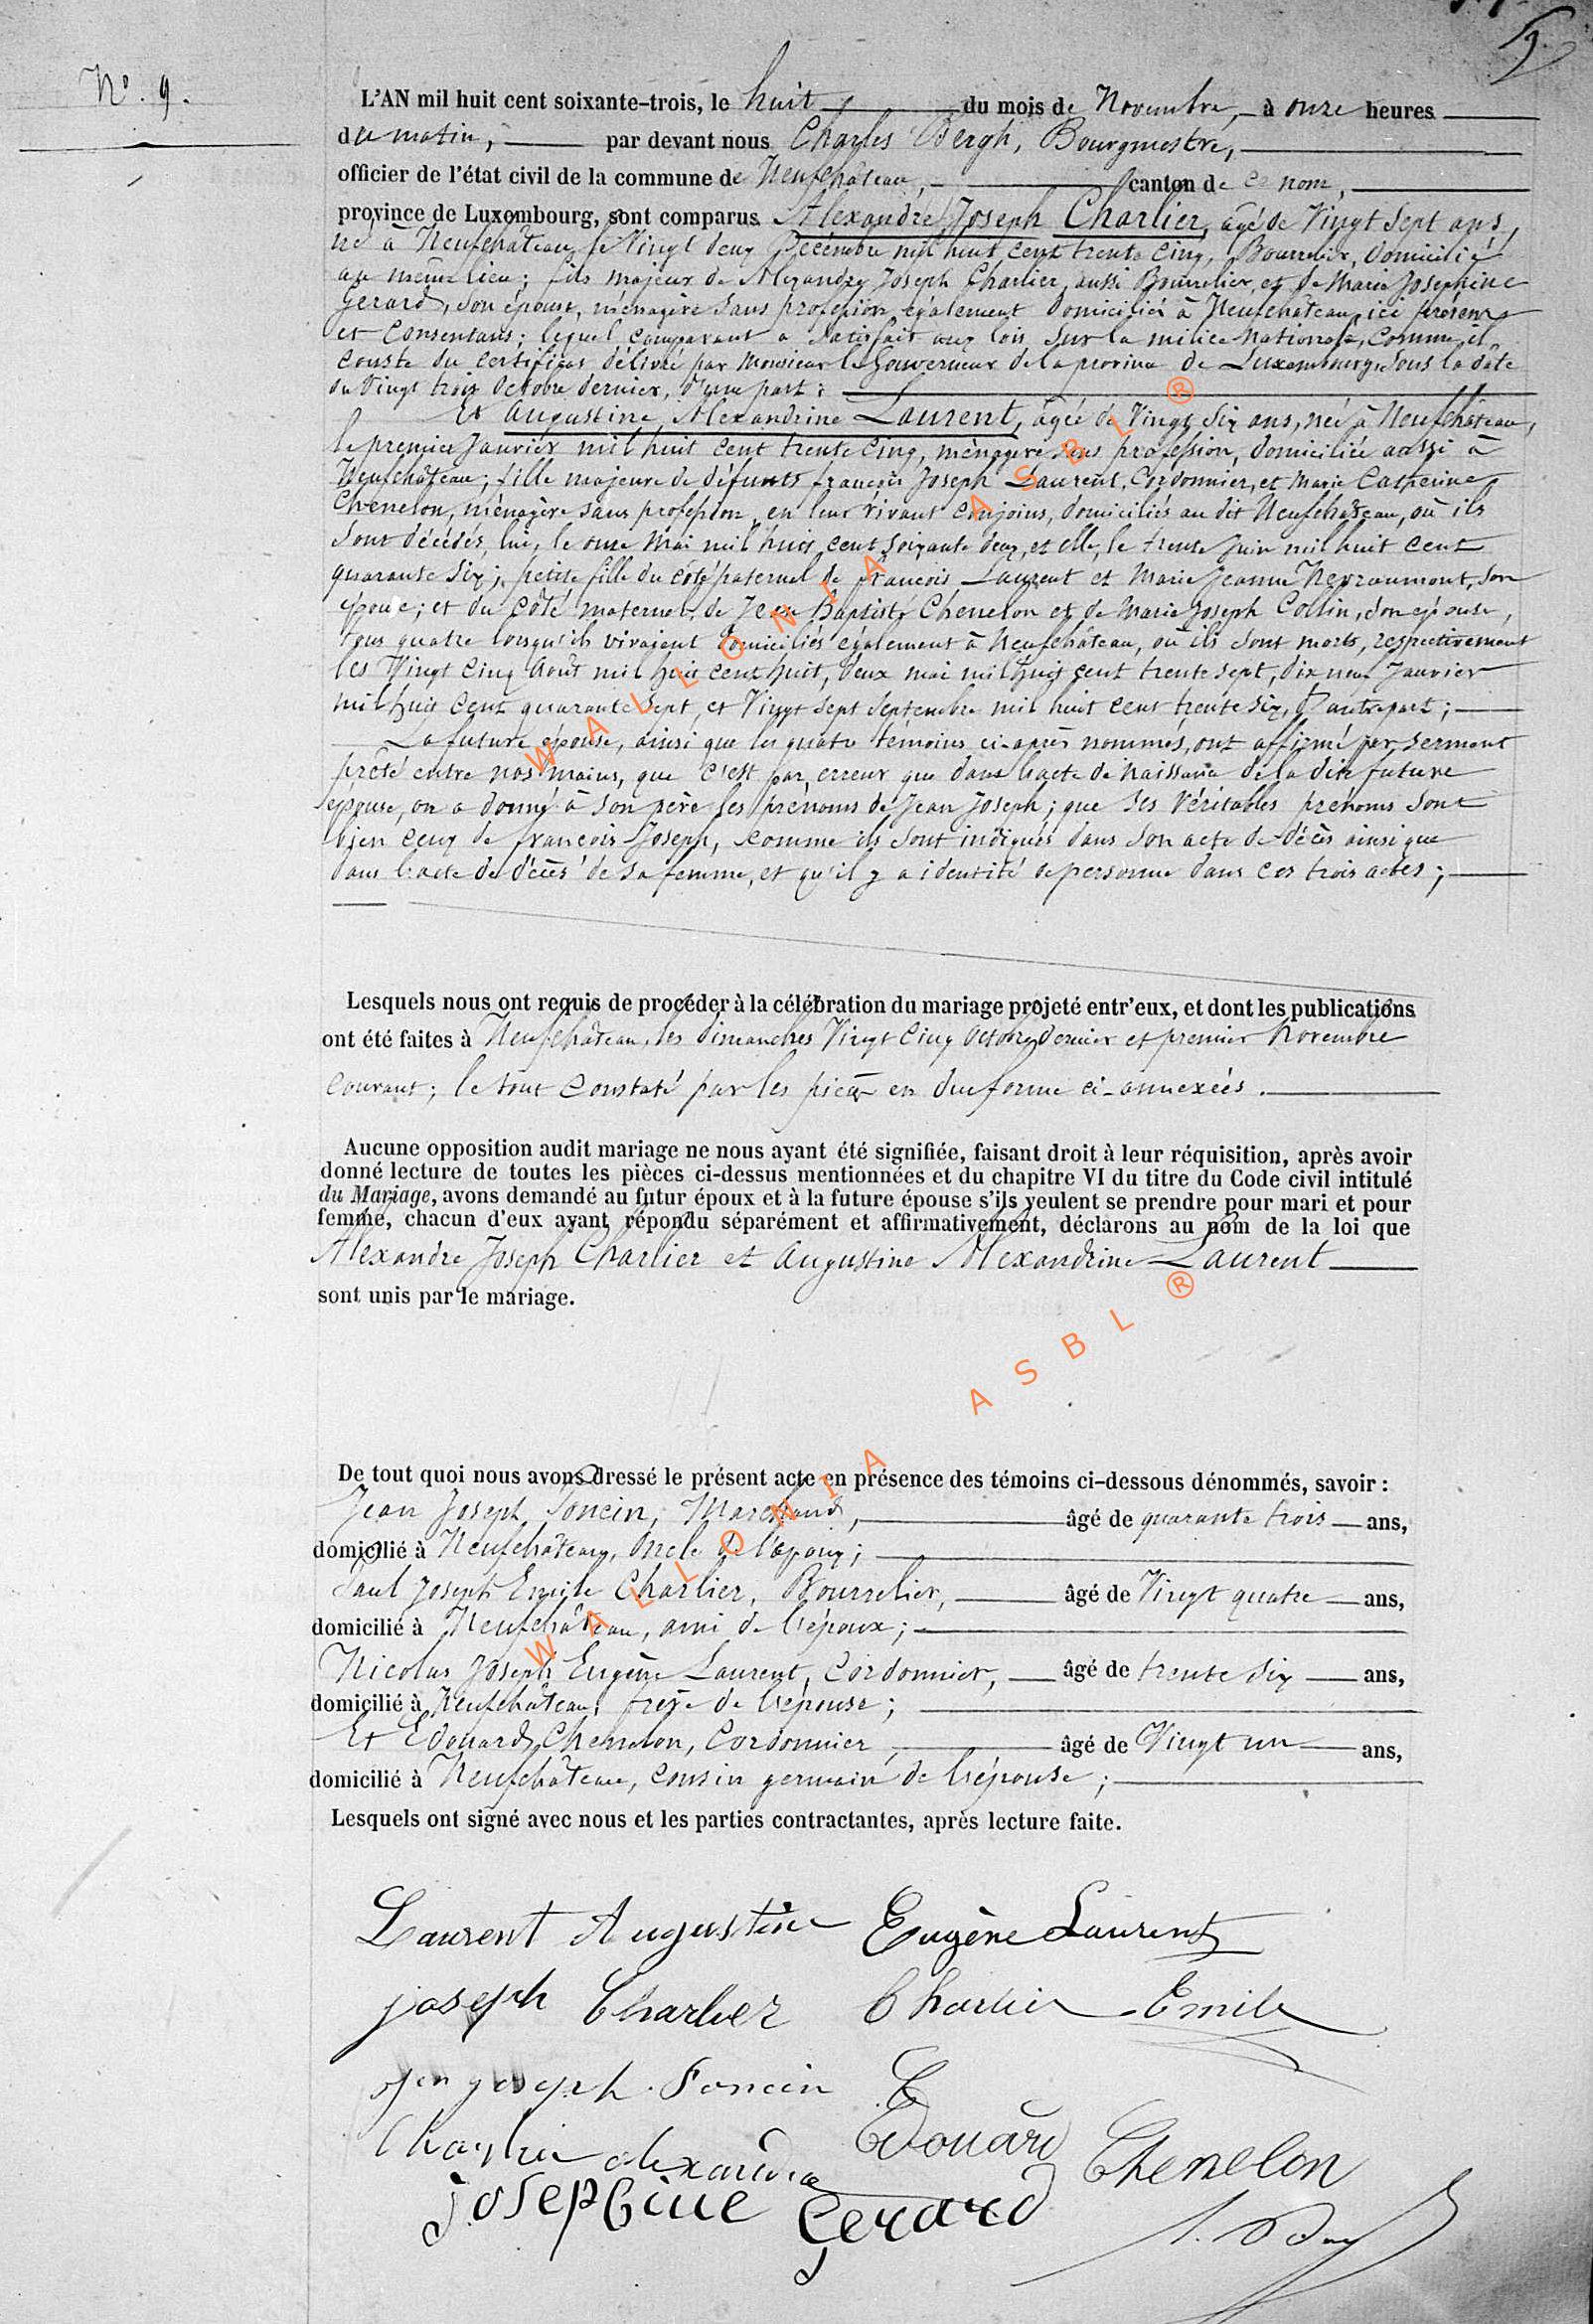 9.
N° 9.
L'AN mil huit cent soixante-trois, le huit du mois de Novembre, à onze heures
du matin, par devant nous Charles Bergh, Bourgmestre,
officier de l'état civil de la commune de Neufchâteau, canton de ce nom,
province de Luxembourg, sont comparus Alexandre Joseph Charlier, âgé de Vingt Sept ans,
né à Neufchâteau, le Vingt deux Décembre mil huit cent trente cinq, Bourrelier, domicilié
au même lieu; fils majeur de Alexandre Joseph Charlier, aussi Bourrelier, et de Marie Josephine
Gerard, son épouse, ménagère sans profession également domiciliés à Neufchâteau, ici présens
et consentans; lequel comparant a satisfait aux lois sur la milice Nationale, comme il
conste du certificat délivré par Monsieur le Gouverneur de la province de Luxembourg, sous la date
du Vingt trois Octobre dernier, d'une part;
Et Augustine Alexandrine Laurent, âgée de Vingt Six ans, née à Neufchâteau,
le premier Janvier mil huit cent trente cinq, ménagère sans profession, domiciliée aussi à
Neufchâteau; fille majeure de défunts françois Joseph Laurent, Cordonnier, et Marie Catherine
Chenelon, ménagère sans profession, en leur vivant conjoins, domiciliés au dit Neufchâteau, où ils
sont décédés, lui, le onze Mai mil huit cent soixante deux, et elle, le trente Juin mil huit cent
quarante six; petite fille du côté paternel de françois Laurent et Marie Jeanne Nevraumont, son
épouse; et du côté maternel de Jean Baptiste Chenelon et de Marie Joseph Collin, son épouse,
tous quatre lorsqu'ils vivaient domiciliés également à Neufchâteau, où ils sont morts, respectivement
les Vingt Cinq Août mil huit cent huit, deux mai mil huit cent trente sept, dix neuf Janvier
mil huit cent quarante sept, et Vingt sept Septembre mil huit cent trente six, d'autre part;
La future épouse, ainsi que les quatre témoins ci-après nommés, ont affirmé par serment
prêté entre nos mains, que c'est par erreur que dans l'acte de naissance de la dite future
épouse, on a donné à son père les prénoms de Jean Joseph; que ses véritables prénoms sont
bien ceux de françois Joseph, comme ils sont indiqués dans son acte de décès ainsi que
dans l'acte de décès de sa femme, et qu'il y a identité de personne dans ces trois actes;
Lesquels nous ont requis de procéder à la célébration du mariage projeté entr'eux, et dont les publications
ont été faites à Neufchâteau, les dimanches Vingt Cinq Octobre dernier et premier Novembre
courant; le tout constaté par les pièces en due forme ci-annexées.
Aucune opposition audit mariage ne nous ayant été signifiée, faisant droit à leur réquisition, après avoir
donné lecture de toutes les pièces ci-dessus mentionnées et du chapitre VI du titre du Code civil intitulé
du Mariage, avons demandé au futur époux et à la future épouse s'ils veulent se prendre pour mari et pour
femme, chacun d'eux ayant répondu séparément et affirmativement, déclarons au nom de la loi que
Alexandre Joseph Charlier et Augustine Alexandrine Laurent
sont unis par le mariage.
De tout quoi nous avons dressé le présent acte en présence des témoins ci-dessous dénommés, savoir :
Jean Joseph Poncin, Marchand, âgé de quarante trois ans,
domicilié à Neufchâteau, Oncle de l'époux;
Paul Joseph Emile Charlier, Bourrelier, âgé de Vingt quatre ans,
domicilié à Neufchâteau, ami de l'époux;
Nicolas Joseph Eugène Laurent, Cordonnier, âgé de trente six ans,
domicilié à Neufchâteau, frère de l'épouse;
Et Edouard Chenelon, Cordonnier, âgé de Vingt un ans,
domicilié à Neufchâteau, cousin germain de l'épouse;
Lesquels ont signé avec nous et les parties contractantes, après lecture faite.
Laurent Augustine Eugène Laurent
joseph Charlier Charlier Emile
Jen joseph Poncin
Charlier alexandre Edouard Chenelon
josephine Gerard
WALLONIA ASBL ®
WALLONIA ASBL ®